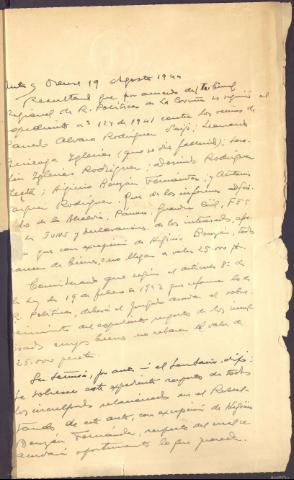 Orense 19 Agosto 1944
Resultando que por acuerdo del Tribunal
Regional de R. Políticas de La Coruña se siguió el
expediente nº 121 de 1941 contra los vecinos de
Alvaro Rodriguez Leonardo
Iglesias (que se dió fallecido);
Iglesias Rodriguez, Rodriguez
Higinio Benzán Fernández, y Antonio
Rodriguez. Que de los informes
de la Alcaldía, Párroco, Guardia Civil, FET
y JONS y declaraciones de los interesados,
que con excepción de Higinio Benzán, todos
de bienes, no llegan a valer 25.000 pts.
Considerando que según el artículo 8º de
la Ley de 19 de febrero de 1942 que reforma la de
R. Políticas, deberá el Juzgado acordar el sobre-
seimiento del expediente respecto de los incul-
pados cuyos bienes no valieren el valor de
25.000 pesetas.
Su Señoría, por ante mí el Secretario, dijo:
Se sobresee este expediente respecto de todos
los inculpados relacionados en el Resul-
tando de este auto, con excepción de Higinio
Benzán Fernández, respecto del cual se
acordará oportunamente lo que proceda.